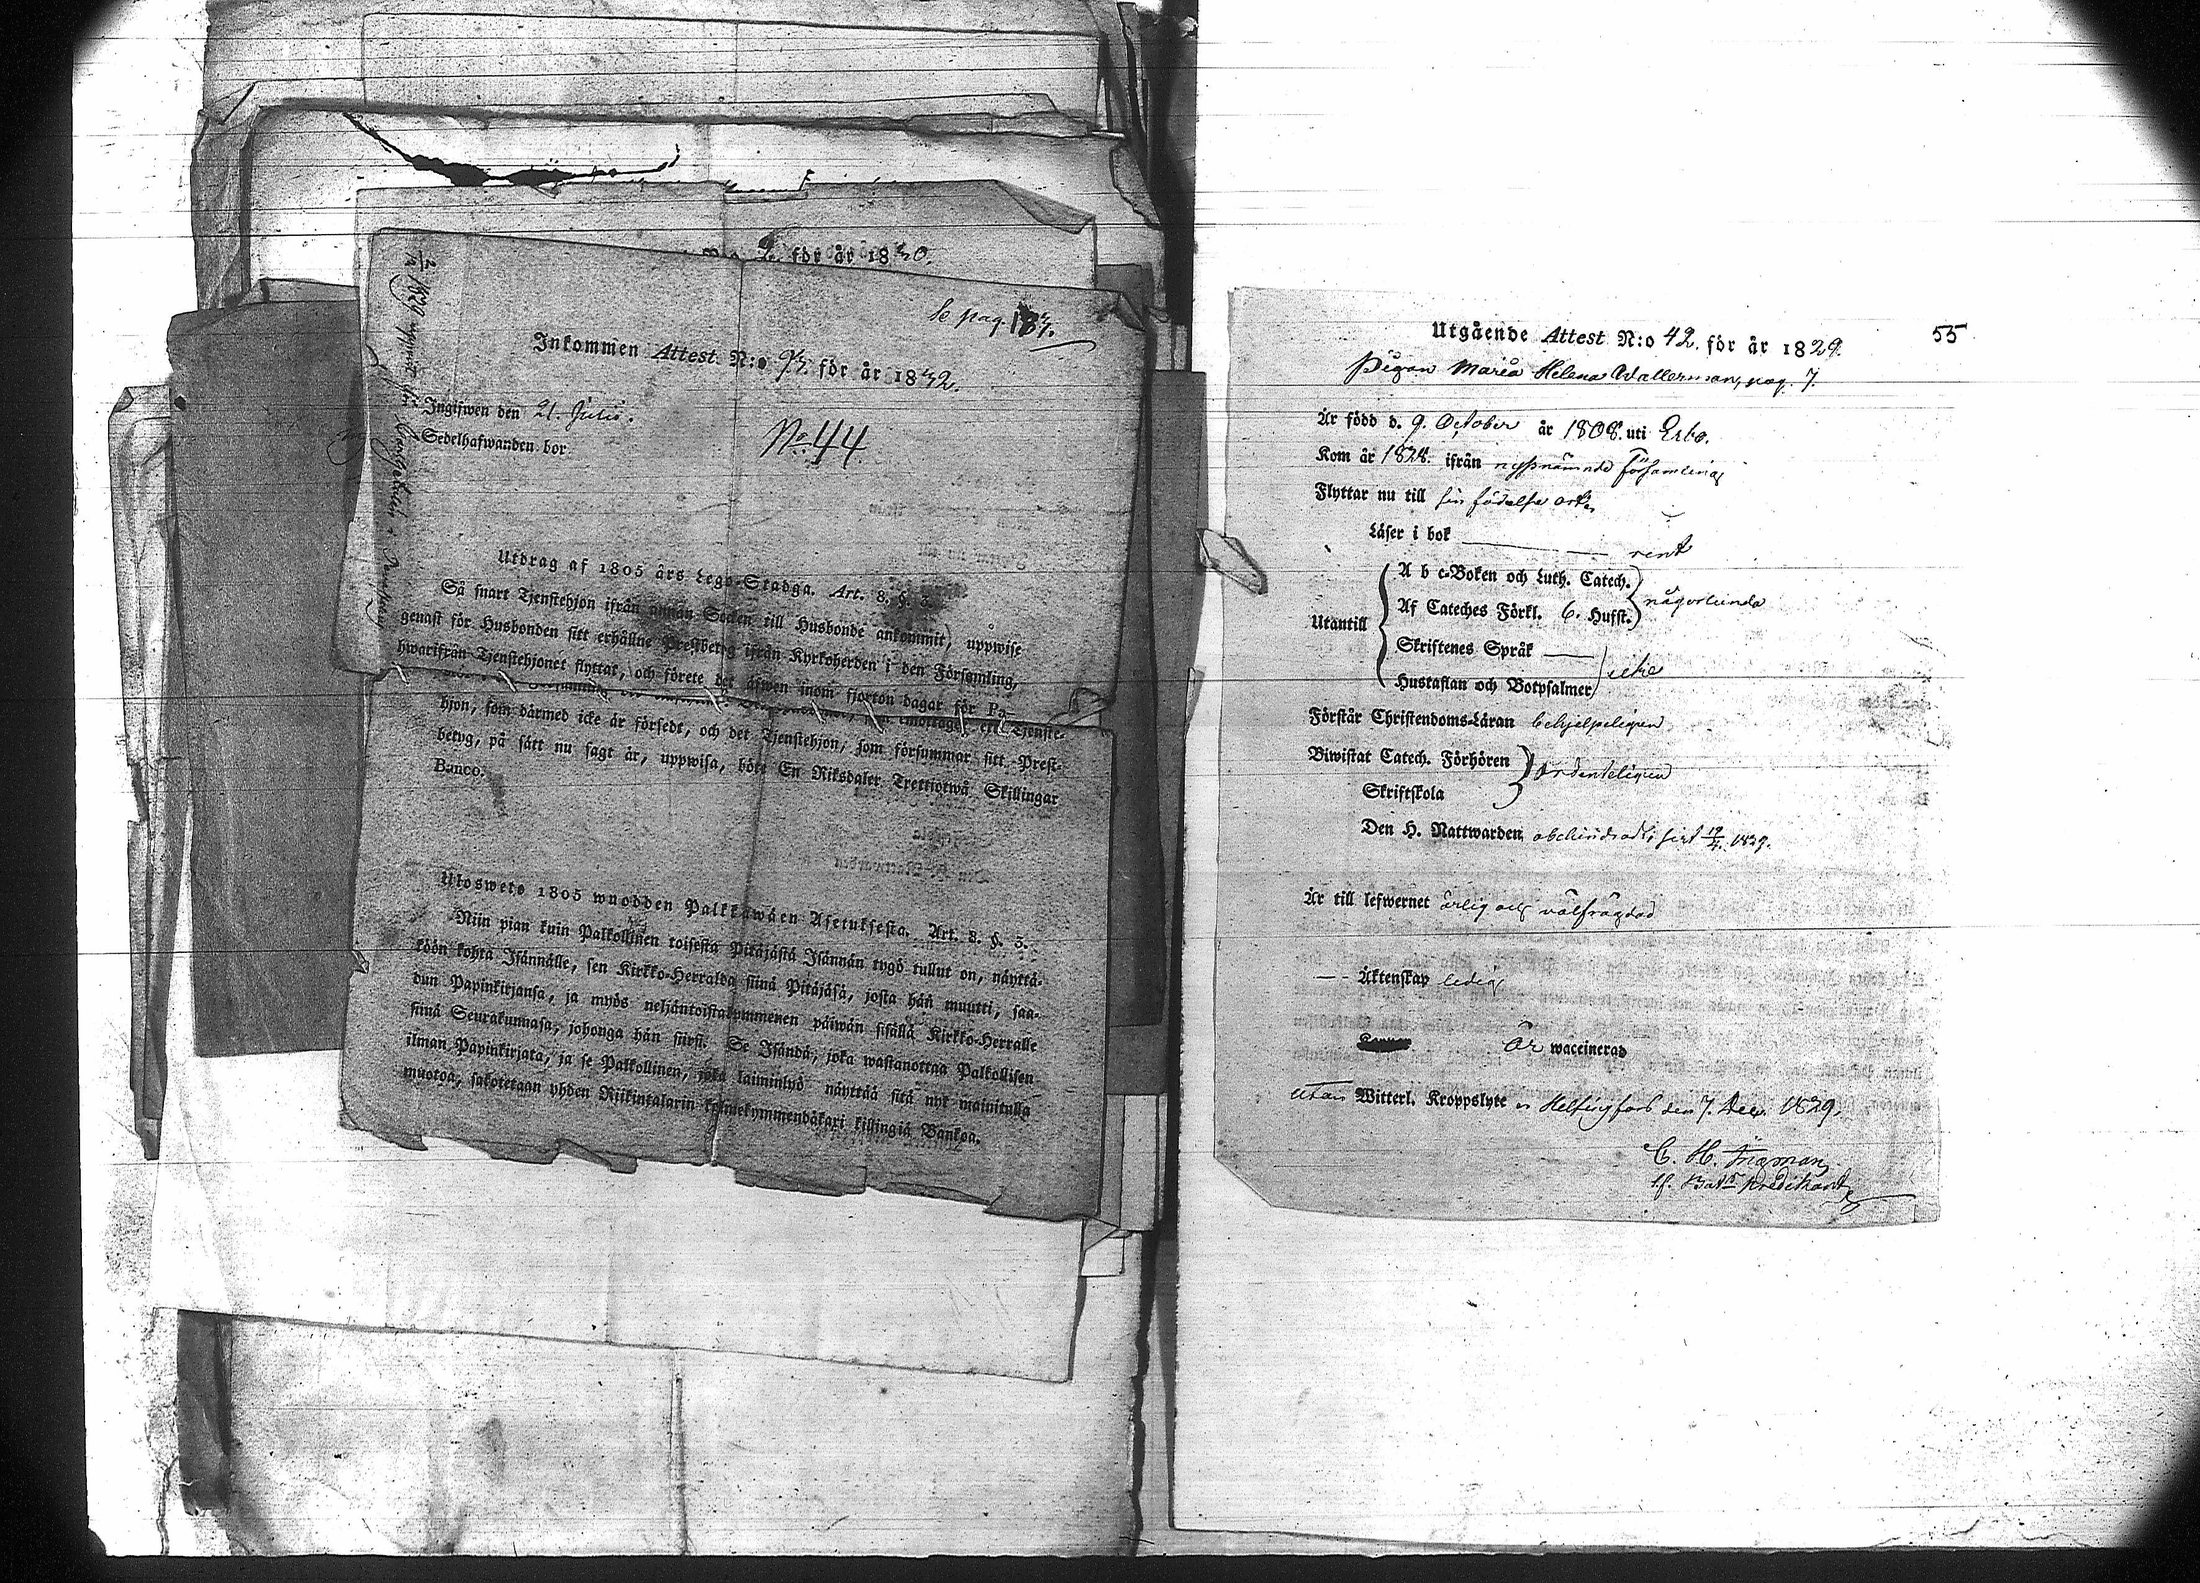 för år 1830.
se pag. 187.
Inkommen Attest N:o 97. för år 1832.
Ingifwen den 21. Julii.
Sedelhafwanden bor
No. 44.
Utdrag af 1805 års Lego-Stadga. Art. 8. §. 3.
Så snart Tjenstehjon ifrån annan Socken till Husbonde ankommit, uppwise
genast för Husbonden sitt erhållne Prestbetyg ifrån Kyrkoherden i den Församling,
hwarifrån Tjenstehjonet flyttat, och förete det äfwen inom fjorton dagar för Pa-
emottager ett Tjenste-
hjon, som därmed icke är försedt, och det Tjenstehjon, som försummar sitt Prest-
betyg, på sätt nu sagt är, uppwisa, böte En Riksdaler Trettiotwå Skillingar
Banco.
Ulosweto 1805 wuodden Palkkawäen Asetuksesta. Art. 8. §. 3.
Niin pian kuin Palkollinen toisesta Pitäjästä Isännän tygö tullut on, näyttä-
köön kohta Isännälle, sen Kirkko-Herralda siinä Pitäjäsä, josta hän muutti, saa-
dun Papinkirjansa, ja myös neljäntoistakymmenen päiwän sisällä Kirkko-Herralle
siinä Seurakunnasa, johonga hän siirsi. Se Isändä, joka wastanottaa Palkollisen
ilman Papinkirjata, ja se Palkollinen, joka laiminlyö näyttää sitä nyt mainitulla
muotoa, sakotetaan yhden Riikintalarin kolmekymmendäkaxi killingiä Bankoa.
55
Utgående Attest N:o 42. för år 1829.
Pigan Maria Helena Wallerman, pag. 7.
Är född d. 9. October år 1808. uti Esbo.
Kom år 1828. ifrån nyssnämnde Församling
Flyttar nu till sin födelse ort.
Läser i bok rent
A b c-Boken och Luth. Catech.
Af Cateches Förkl. 6. Hufst. någorlunda
Utantill
Skriftenes Språk
Hustaflan och Botpsalmer icke
Förstår Christendoms-Läran behjelpeligen
Biwistat Catech. Förhören ordenteligen
Skriftskola
Den H. Nattwarden obehindrad; sist 19/4. 1829.
Är till lefwernet ärlig och välfrägdad
-- Äktenskap ledig
Är waccinerad
utan Witterl. Kroppslyte Helsingfors den 7. Dec. 1829.
C. H. Ingman,
t.f. Bats Predikant